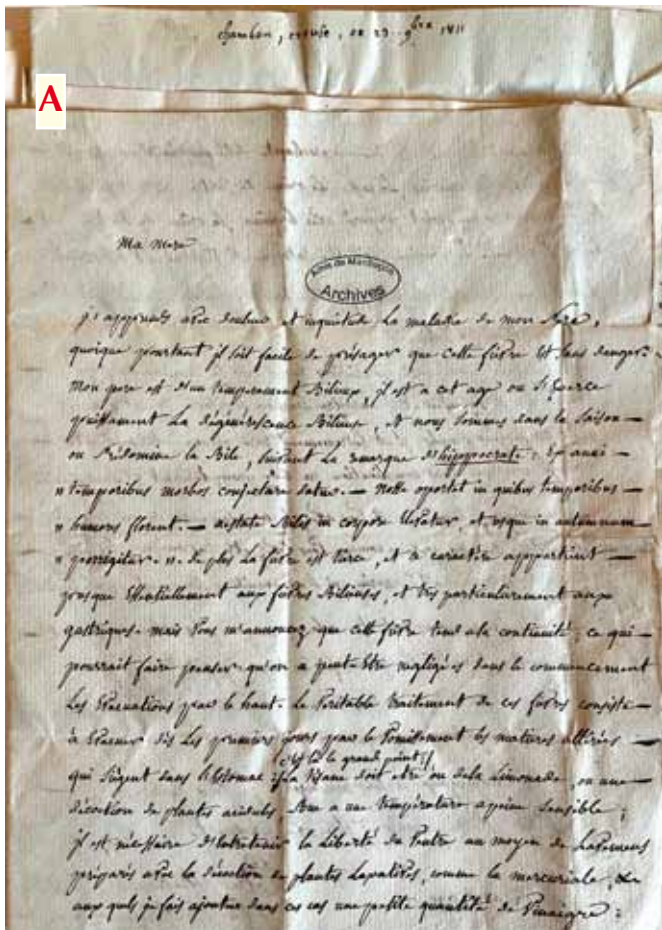 chambon, creuse, ce 29 9bre 1811
A
Ma mere
Archives
j'apprends avec douleur et inquietude la maladie de mon pere,
quoique pourtant jl soit facile de présager que cette fievre est sans danger.
mon pere est d'un temperament Bilieux, jl est a cet age ou s'exerce
puissament la dégénérescence Bilieuse, et nous sommes dans la saison
ou prédomine la Bile, suivant la remarque d'hippocrate: Ex anni
" temporibus morbos conjectura datur. — nosse oportet in quibus temporibus
" humores florent. — aestate Bilis in corpore et usque in autumnum
" porrigitur. ". de plus la fievre est tierce, et ce caractère appartient
presque Essentiellement aux fievres Bilieuses, et très particulierement aux
gastriques. mais vous m'annoncez que cette fievre tend a la continuité; ce qui
pourrait faire penser qu'on a peut-Etre negligées dans le commencement
les Evacuations par le haut. le véritable traitement de ces fievres consiste
à Evacuer dès les premiers jours par le vomissement les matieres altérées
c'est là le grand point!
qui siègent dans l'Estomac; la tisane doit etre ou de la limonade, ou une
décoction de plantes acidules, Bue a une température a peine sensible;
jl est nécessaire d'Entretenir la liberté du ventre au moyen de lavemens
préparés avec la décoction de plantes laxatives, comme la mercuriale, &c
aux quels je fais ajouter dans ces cas une petite quantité de vinaigre;